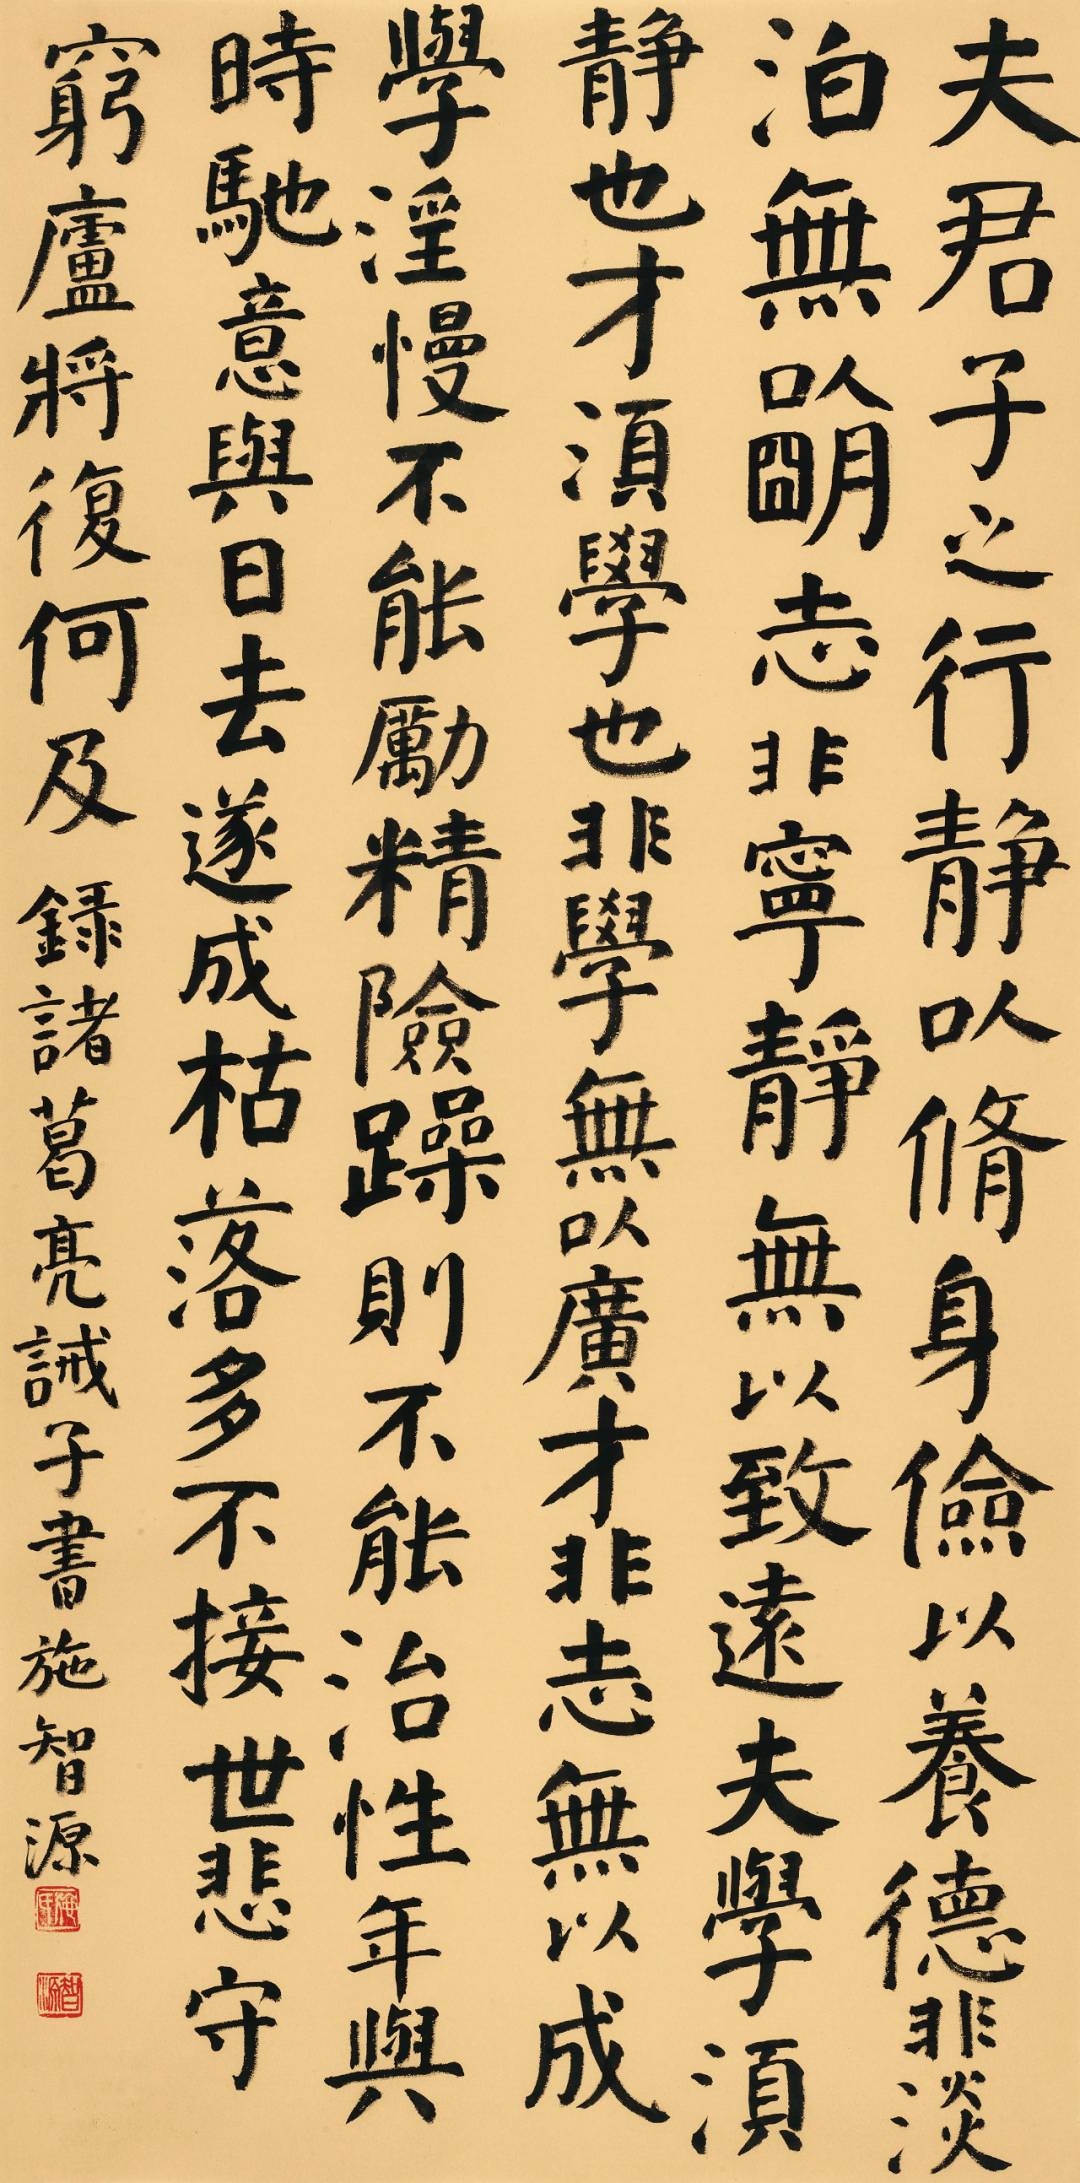 夫君子之行静以脩身儉以養德非淡
泊無以朙志非寧靜無以致遠夫學須
静也才湏學也非學無以廣才非志無以成
學淫慢不能勵精險躁則不能治性年與
時馳意與日去遂成枯落多不接世悲守
窮廬將復何及 録諸葛亮誡子書施智源
施氏
智源